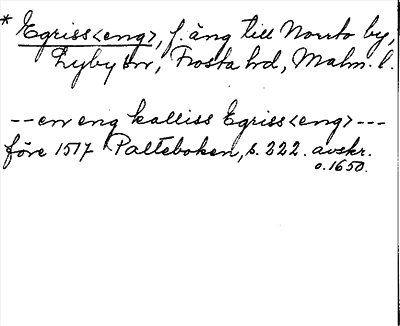 * Egriss<eng>, f. äng till Norrto by,
Lyby sn, Frosta hd, Malm. l.
--en eng kalliss Egriss<eng>---
före 1517 Palteboken, s. 222. avskr.
o. 1650.